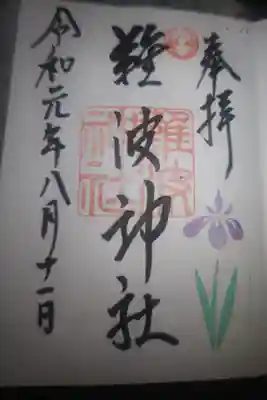 奉拝
難波神社
難波神社
令和元年八月十一日